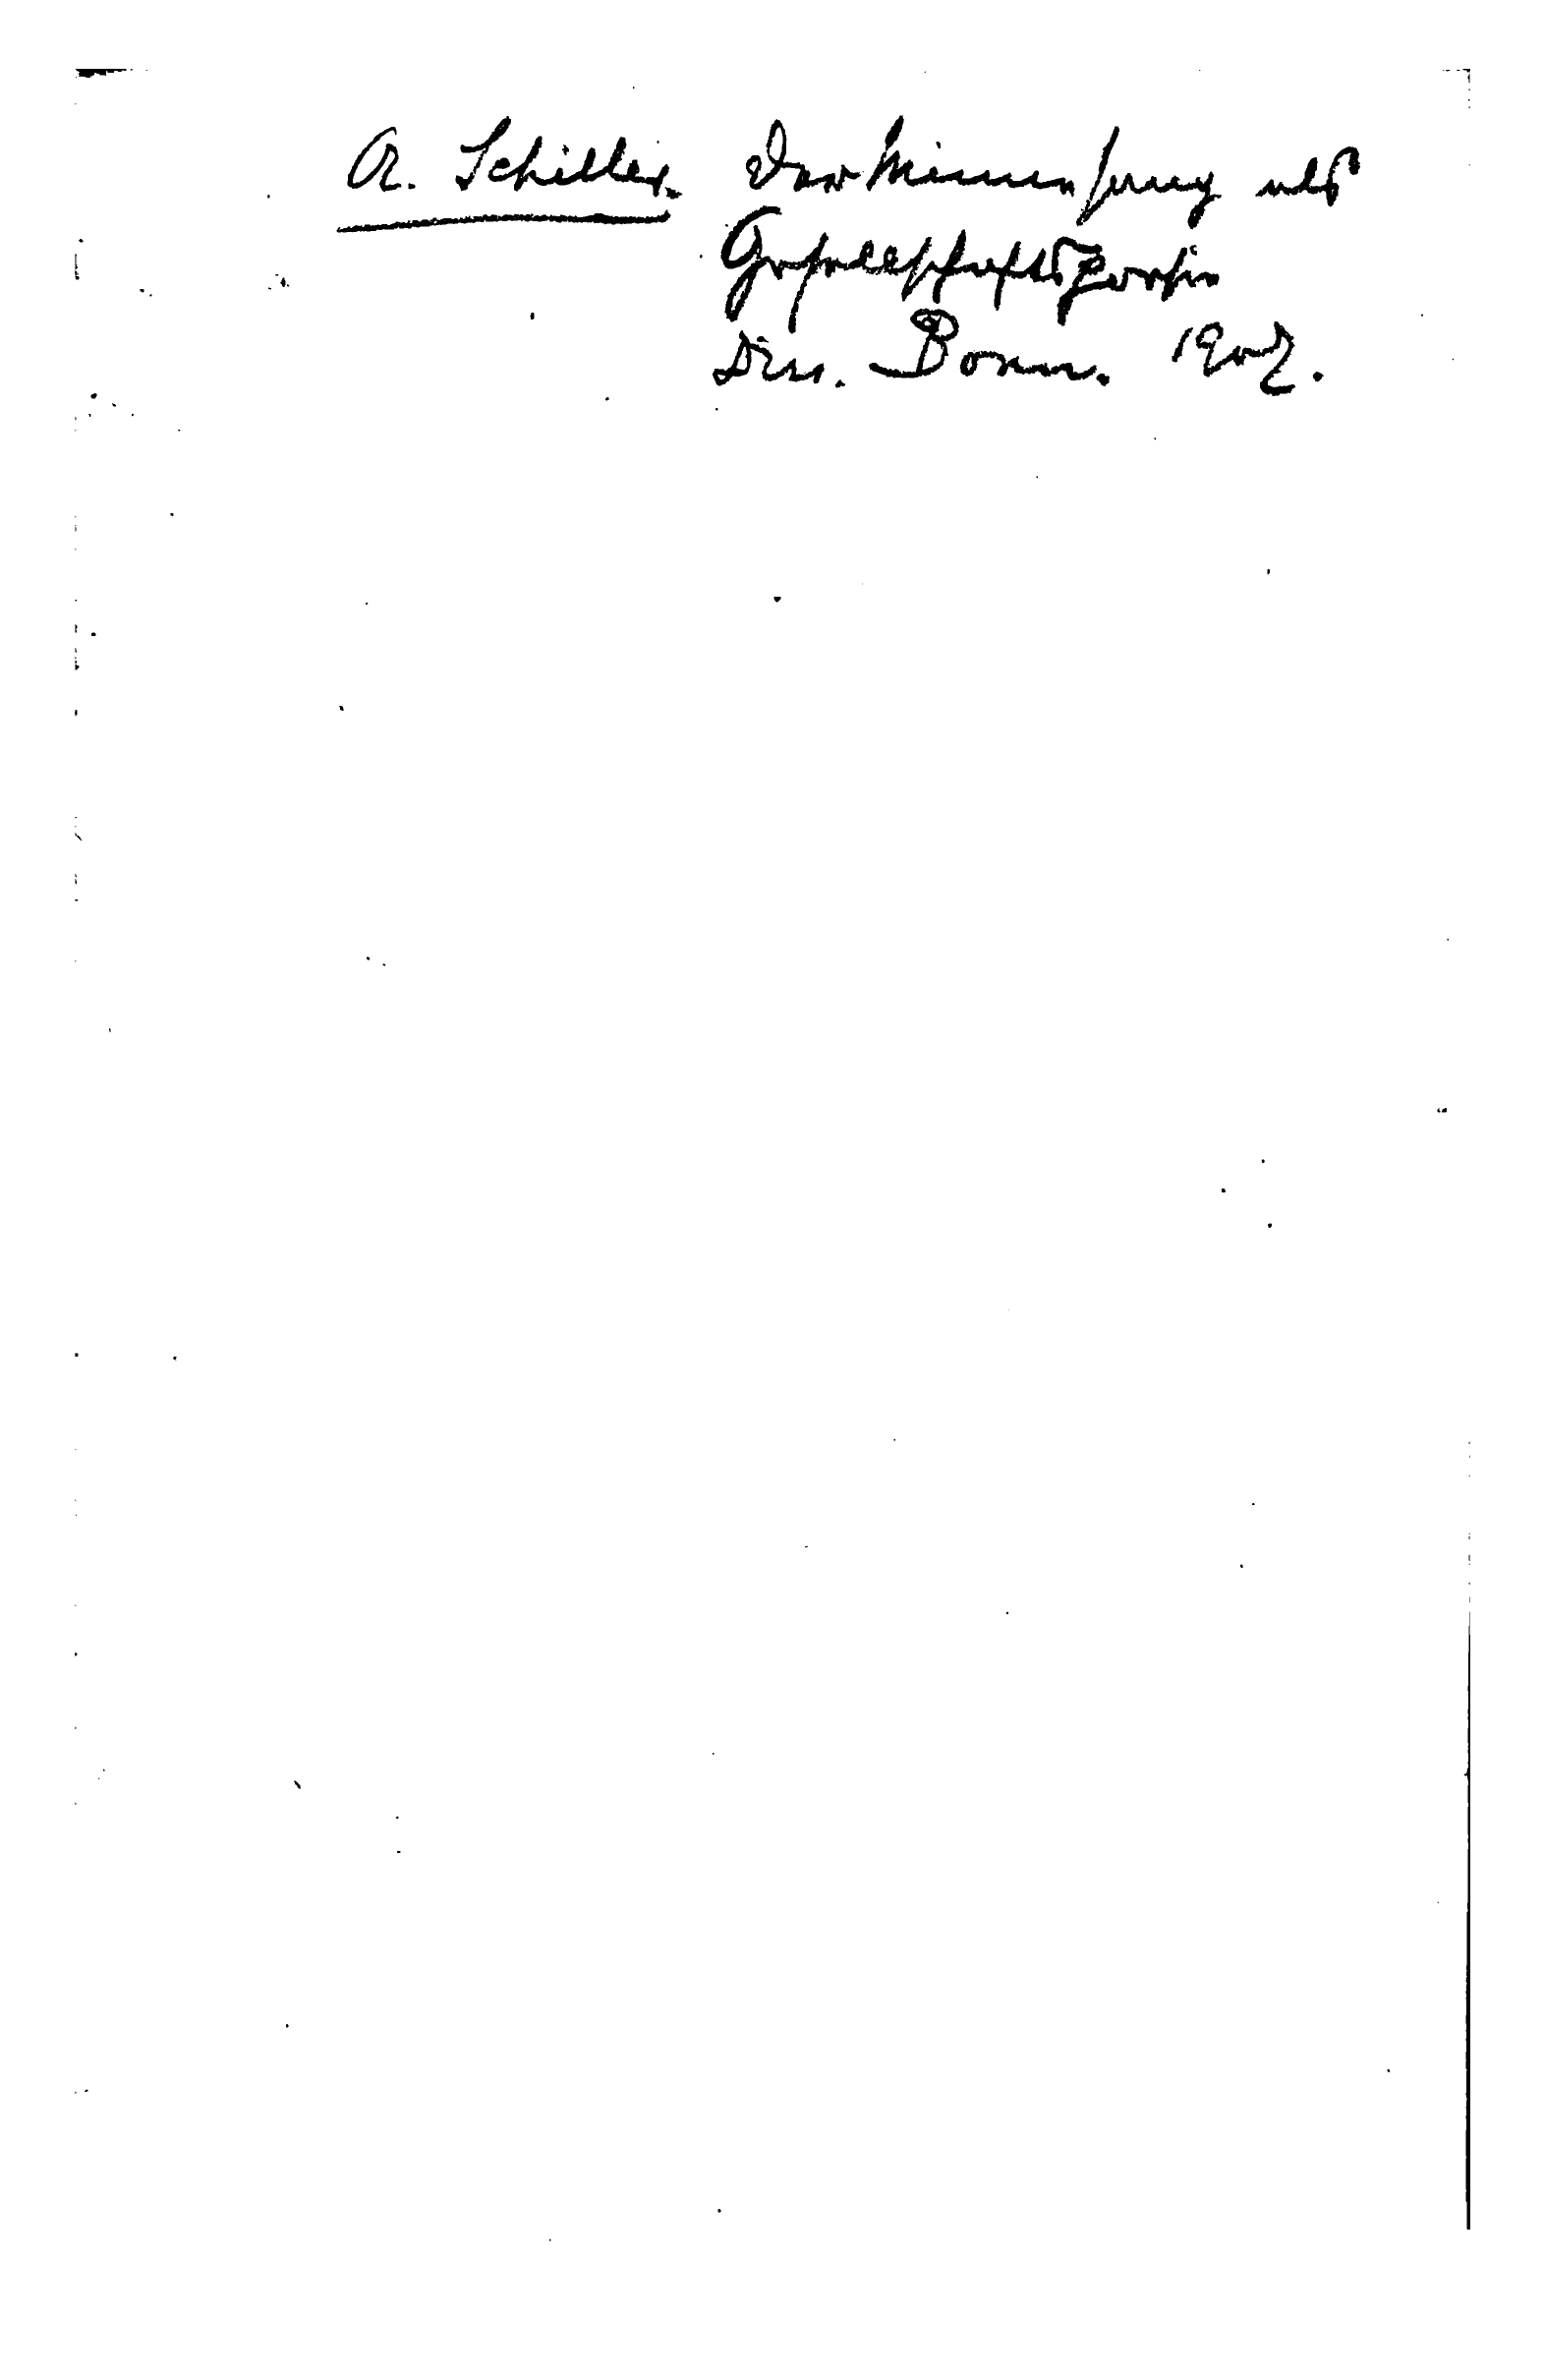 A. Schiller. Der Minnesang als
Gesellschaftspoesie
Diss. Bonn. 1907.